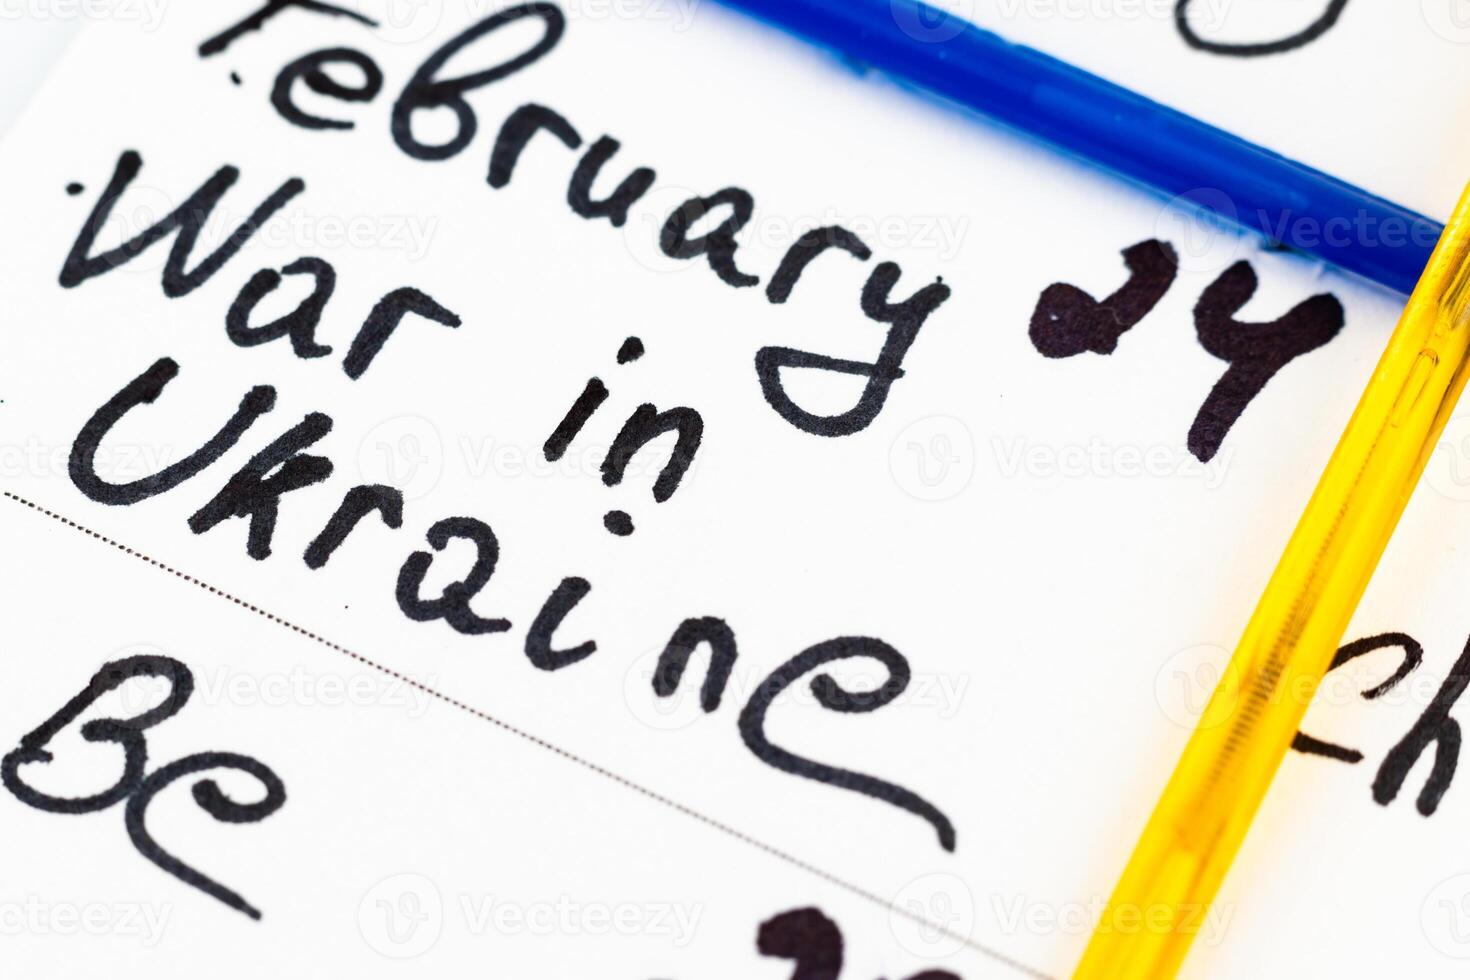 February 24
War in
Ukraine
Be
ch